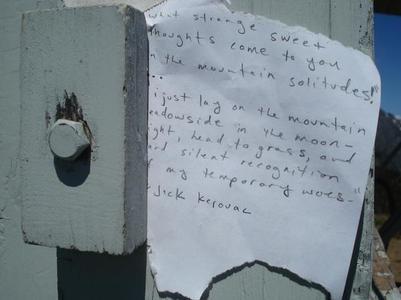 what strange sweet
thoughts come to you
n the mountain solitudes!
...
i just lay on the mountain
eadowside in the moon-
ight, head to grass, and
ard silent recognition
f my temporary woes-"
-Jack Kerouac